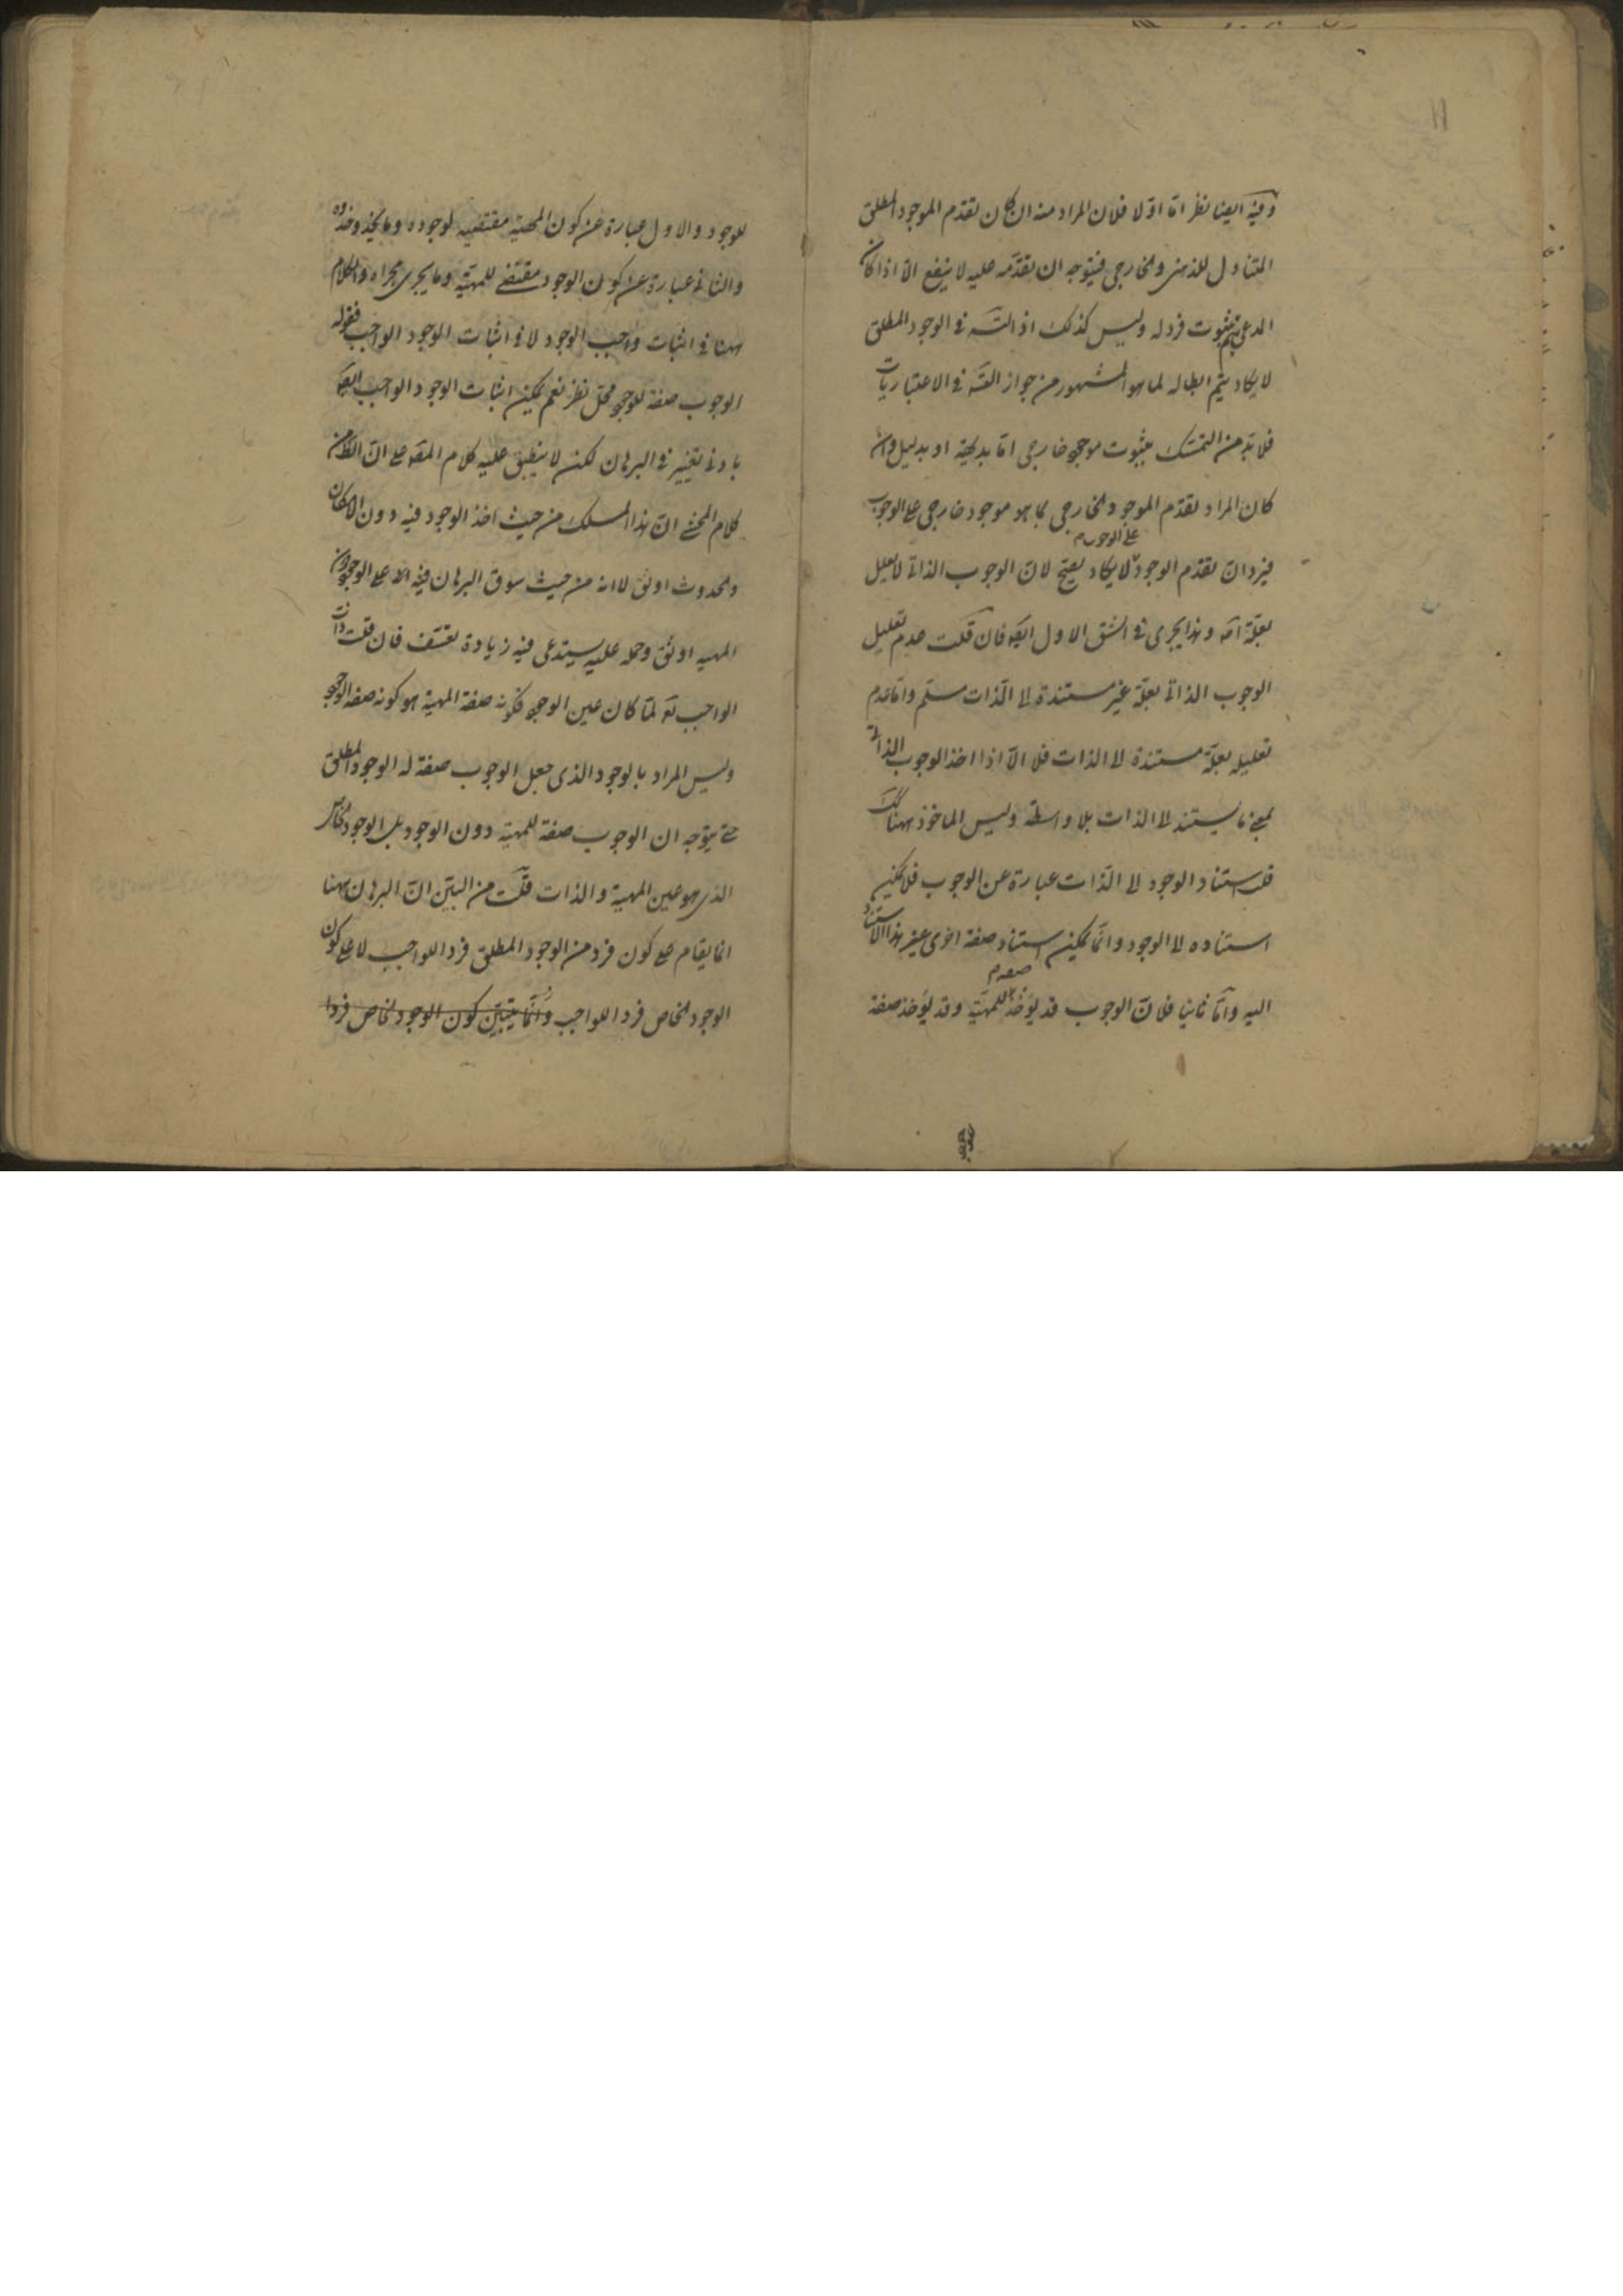 ١١
وفيه ايضا نظر اما اولا فلان المراد منه ان كان تقدم الموجود المطلق
المتناول للذهنى والخارجى فيتوجه ان تقدمه عليه لا ينفع الا اذا كان
المدعى يتم بثبوت فرد له وليس كذلك اذ التسـ فى الوجود المطلق
لا يكاد يتم ابطاله لما هو المشهور من جواز التسـ فى الاعتباريات
فلا بد من التمسك بثبوت موجود خارجى اما بديهة او بدليل وان
كان المراد تقدم الموجود الخارجى بما هو موجود خارجى على الوجوب
على الوجوب
فيرد ان تقدم الوجود لا يكاد يصح لان الوجوب الذاتى لا يعلل
بعلة اصـ وهذا يجرى فى الشق الاول ايضـ فان قلت عدم تعليل
الوجوب الذاتى بعلة غير مستندة الى الذات مسلم واما عدم
تعليله بعلة مستندة الى الذات فلا الا اذا اخذ الوجوب الذاتى
بمعنى ما يستند الى الذات بلا واسطة وليس الماخوذ ههنا كك
قلت استناد الوجود الى الذات عبارة عن الوجوب فلا يمكن
استناده الى الوجود وانما يمكن استناد صفة اخرى غير هذا الاستناد
صفة
اليه واما ثانيا فلان الوجوب قد يؤخذ للمهية وقد يؤخذ صفة
للوجود والاول عبارة عن كون المهية مقتضية لوجوده وما يحذو حذوه
والثانى عبارة عن كون الوجود مقتضى للمهية وما يجرى مجراه والكلام
ههنا فى اثبات واجب الوجود لا فى اثبات الوجود الواجب فقوله
الوجوب صفة للوجود محل نظر نعم يمكن اثبات الوجود الواجب ايضـ
بادنى تغيير فى البرهان لكن لا ينطبق عليه كلام المصـ على ان الظـ من
كلام المحشى ان هذا المسلك من حيث اخذ الوجود فيه دون الامكان
والحدوث اوثق لا انه من حيث سوق البرهان فيه على الوجود دون
المهية اوثق وحمله عليه يستدعى فيه زيادة تعسف فان قلت ذات
الواجب تعـ لما كان عين الوجود فكونه صفة المهية هو كونه صفة الوجود
وليس المراد بالوجود الذى جعل الوجوب صفة له الوجود المطلق
حتى يتوجه ان الوجوب صفة للمهية دون الوجود بل الوجود الخاص
الذى هو عين المهية والذات قلت من البين ان البرهان ههنا
انما يقام على كون فرد من الوجود المطلق فردا للواجب لا على كون
الوجود الخاص فردا للواجب وانما يتبين كون الوجود الخاص فردا